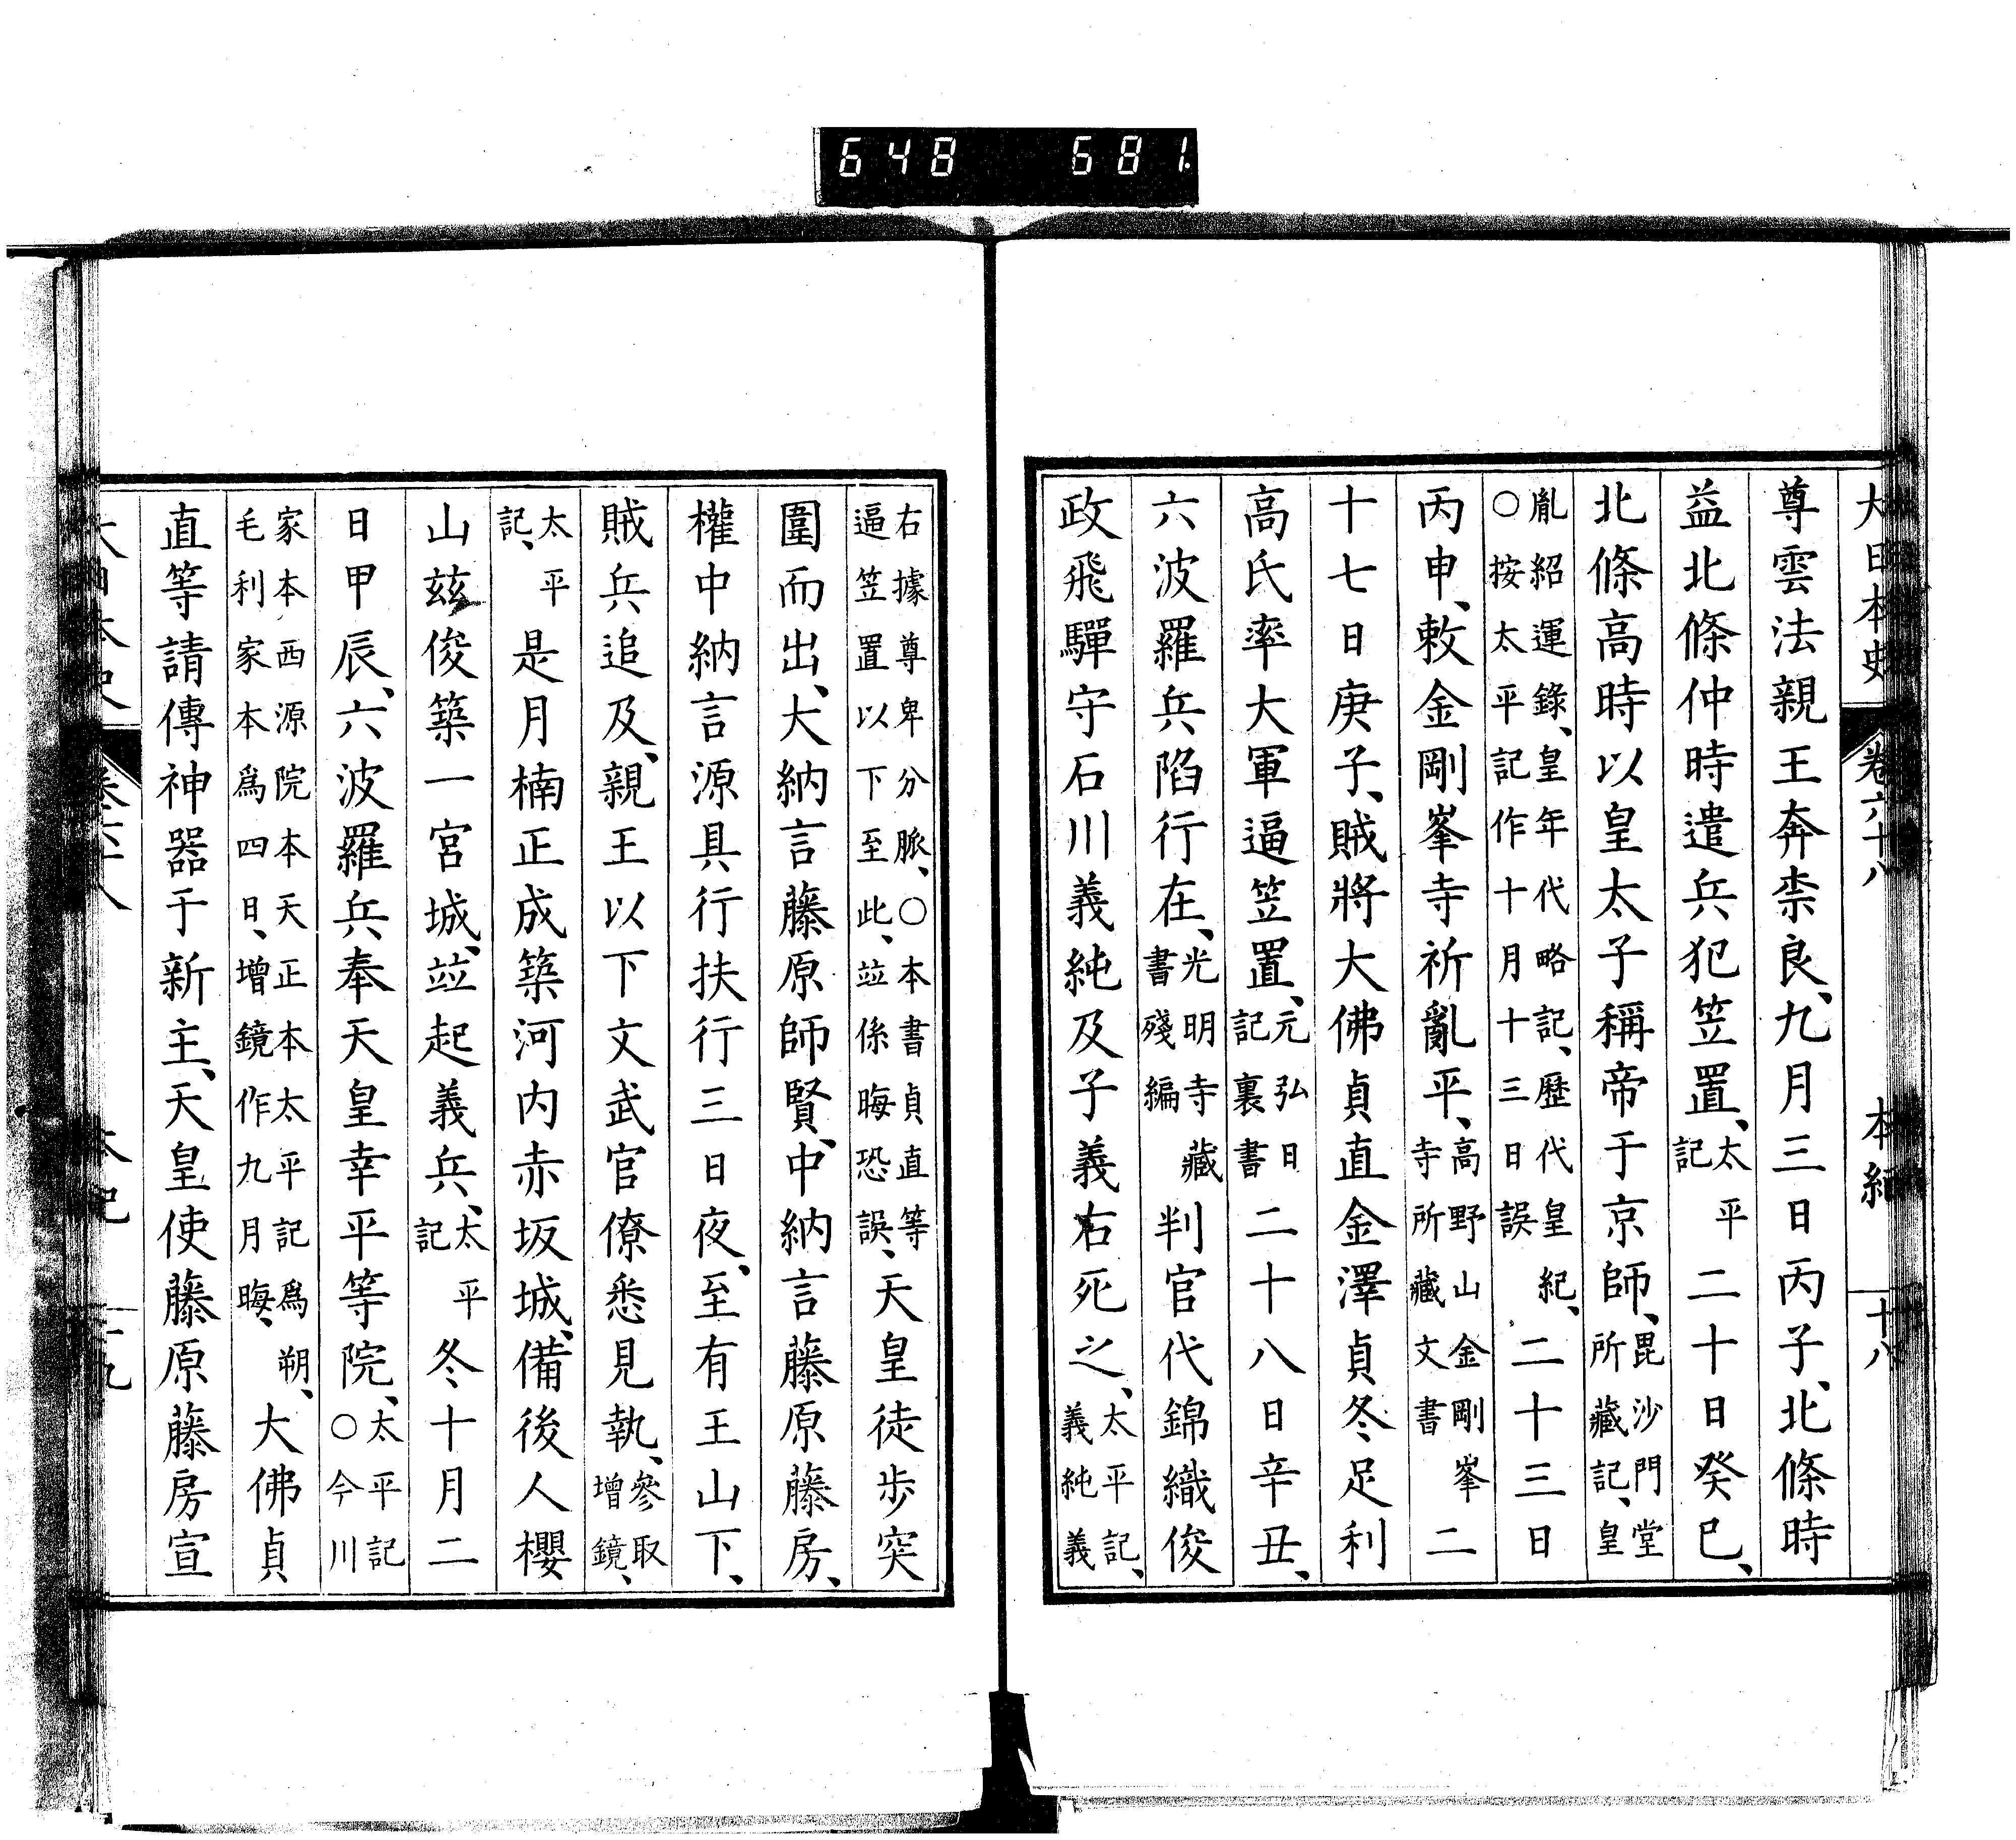 648 681.
大日本史 卷六十八 本紀 十八
尊雲法親王奔柰良、九月三日丙子、北條時
益北條仲時遣兵犯笠置、太平記二十日癸巳、
北條高時以皇太子稱帝于京師、毘沙門堂所藏記、皇
胤紹運錄、皇年代略記、歷代皇紀、○按太平記作十月十三日誤二十三日
丙申、敕金剛峯寺祈亂平、高野山金剛峯寺所藏文書二
十七日庚子、賊將大佛貞直金澤貞冬足利
高氏率大軍逼笠置、元弘日記裏書二十八日辛丑、
六波羅兵陷行在、光明寺藏書殘編判官代錦織俊
政飛驒守石川義純及子義右死之、太平記、義純義
右據尊卑分脈、○本書貞直等逼笠置以下至此、竝係晦恐誤、天皇徒步突
圍而出、大納言藤原師賢、中納言藤原藤房、
權中納言源具行扶行三日夜、至有王山下、
賊兵追及、親王以下文武官僚悉見執、參取增鏡、
太平記、是月楠正成築河内赤坂城、備後人櫻
山玆俊築一宮城、竝起義兵、太平記冬十月二
日甲辰、六波羅兵奉天皇幸平等院、太平記○今川
家本西源院本天正本太平記爲朔、毛利家本爲四日、增鏡作九月晦、大佛貞
直等請傳神器于新主、天皇使藤原藤房宣